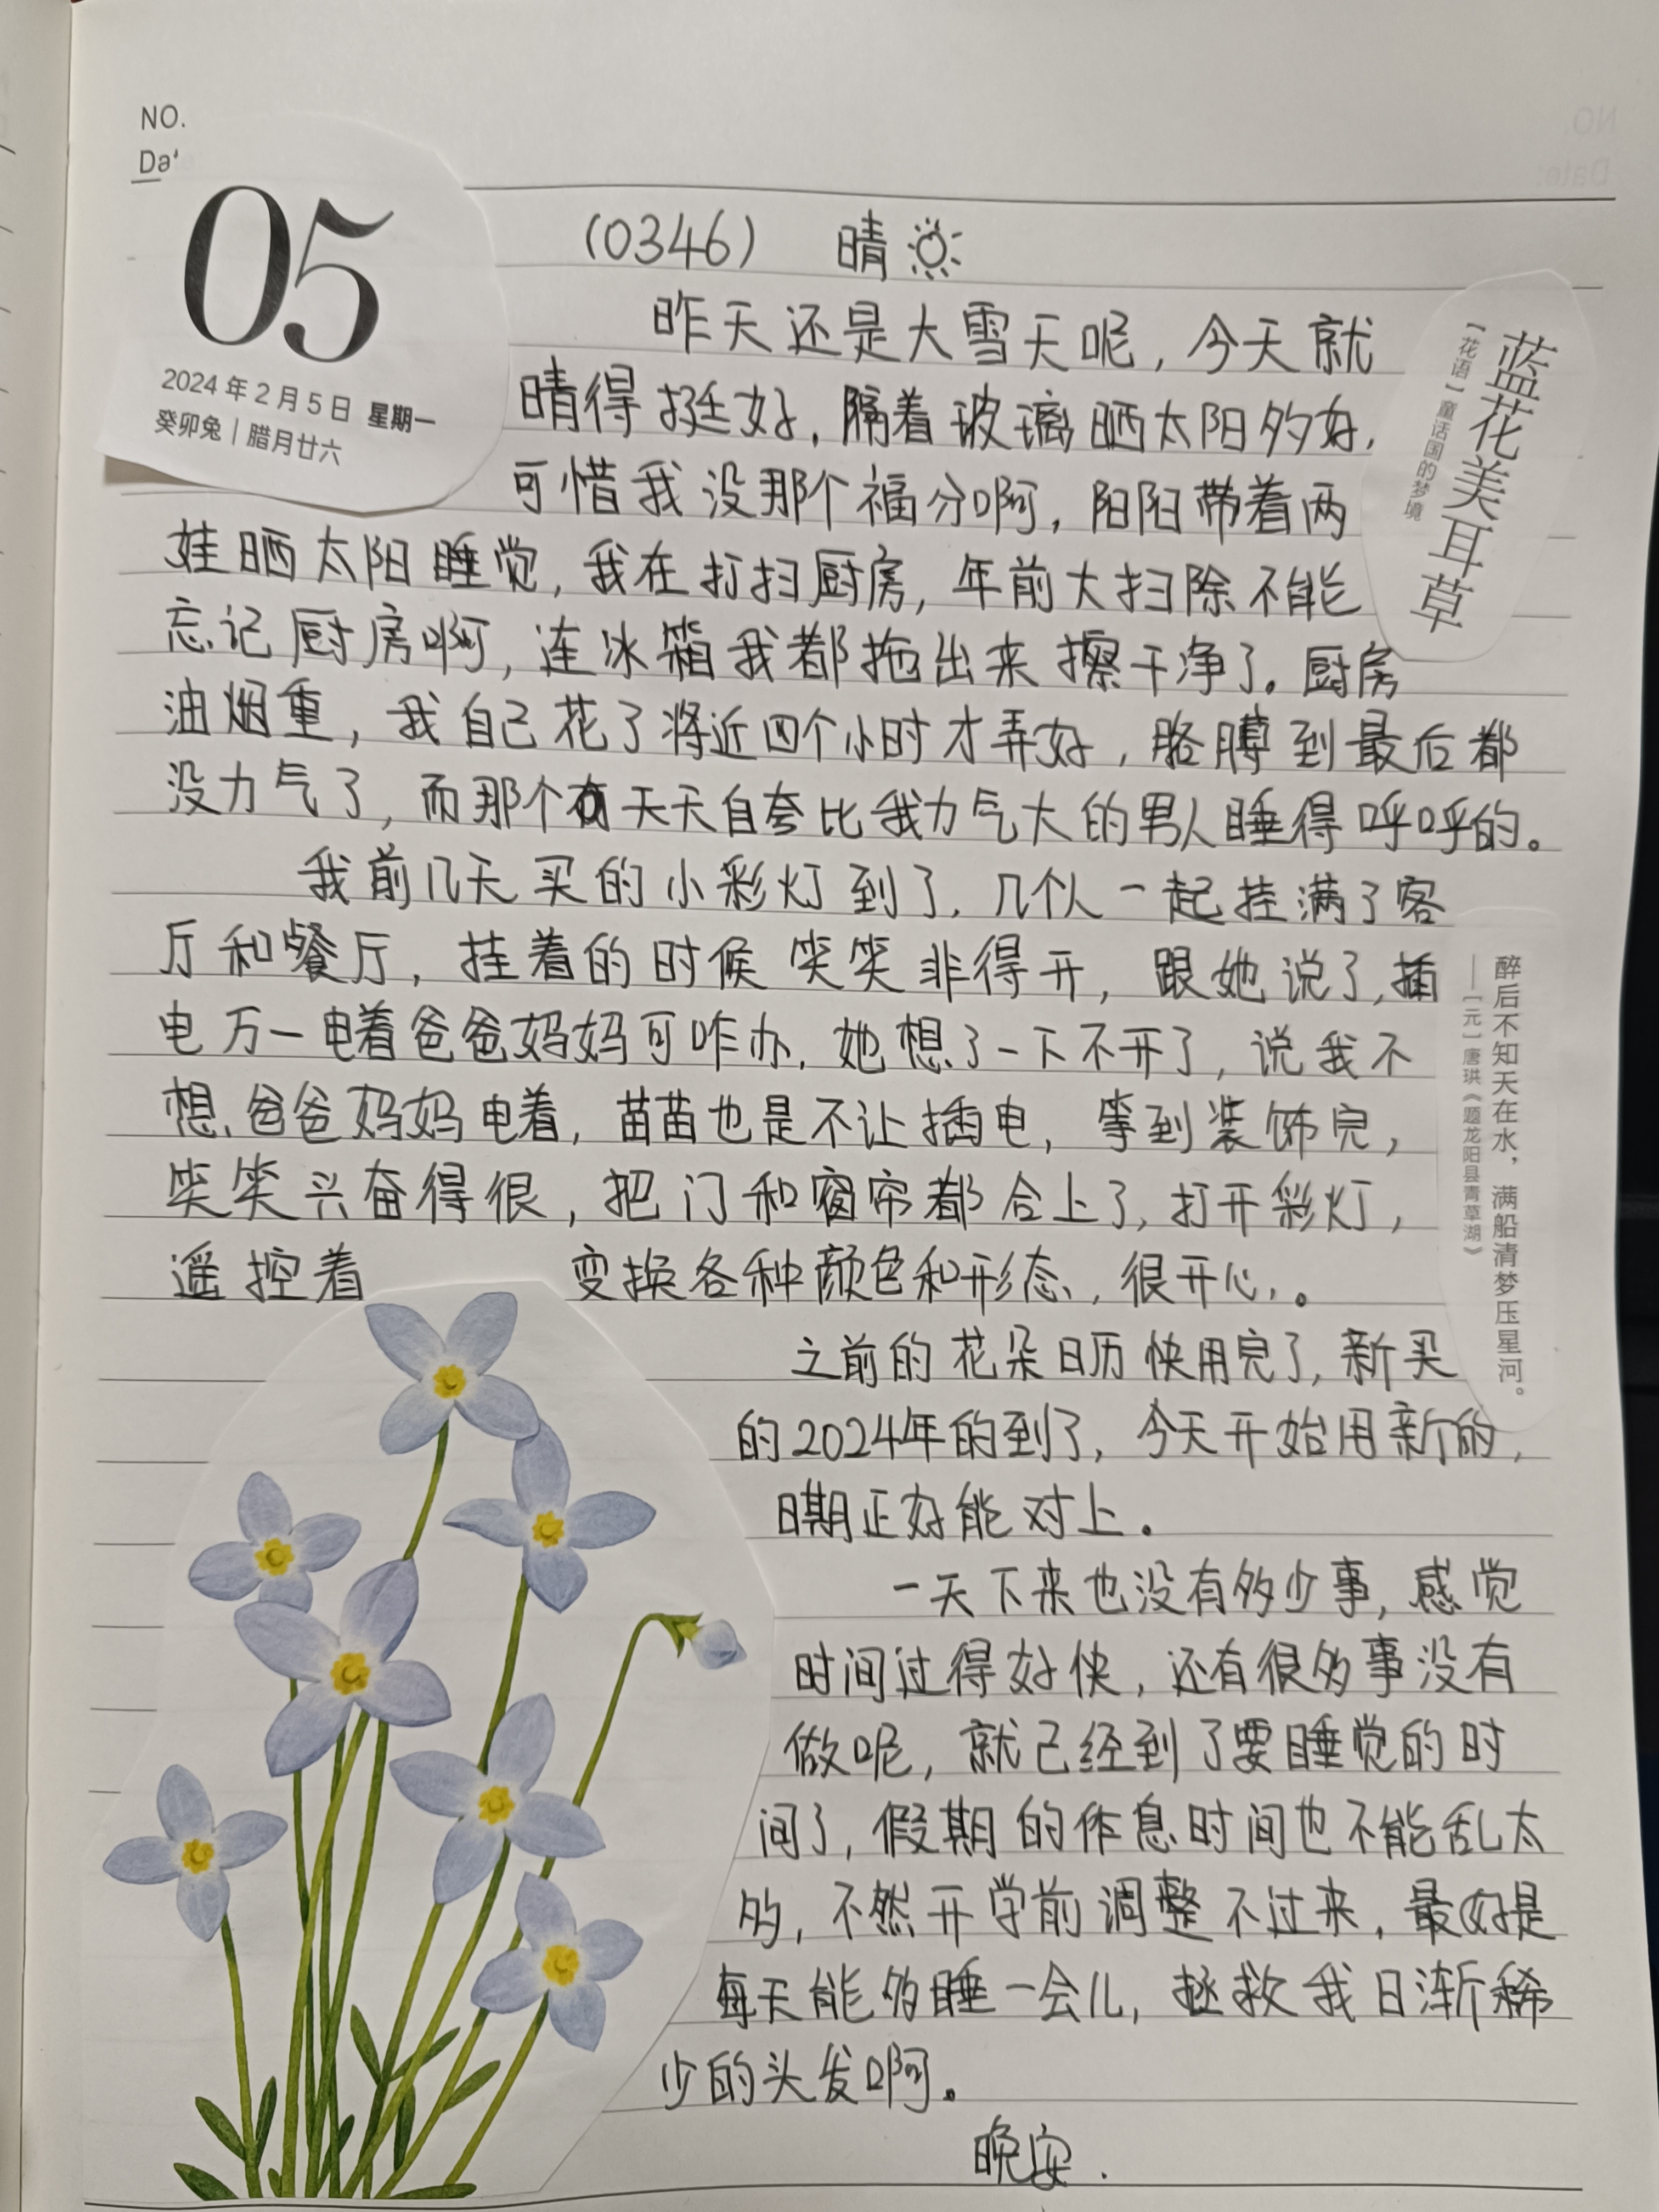 NO.
Da
05
2024年2月5日 星期一
癸卯兔｜腊月廿六
(0346) 晴
昨天还是大雪天呢，今天就
晴得挺好，隔着玻璃晒太阳多好，
可惜我没那个福分啊，阳阳带着两
娃晒太阳睡觉，我在打扫厨房，年前大扫除不能
忘记厨房啊，连冰箱我都拖出来擦干净了。厨房
油烟重，我自己花了将近四个小时才弄好，胳膊到最后都
没力气了，而那个天天自夸比我力气大的男人睡得呼呼的。
我前几天买的小彩灯到了，几个人一起挂满了客
厅和餐厅，挂着的时候笑笑非得开，跟她说了，插
电万一电着爸爸妈妈可咋办，她想了一下不开了，说我不
想爸爸妈妈电着，苗苗也是不让插电，等到装饰完，
笑笑兴奋得很，把门和窗帘都合上了，打开彩灯，
遥控着变换各种颜色和形态，很开心。
之前的花朵日历快用完了，新买
的2024年的到了，今天开始用新的，
日期正好能对上。
一天下来也没有多少事，感觉
时间过得好快，还有很多事没有
做呢，就已经到了要睡觉的时
间了，假期的作息时间也不能乱太
多，不然开学前调整不过来，最好是
每天能多睡一会儿，拯救我日渐稀
少的头发啊。
晚安.
蓝花美耳草
【花语】童话国的梦境
醉后不知天在水，满船清梦压星河。
——［元］唐珙《题龙阳县青草湖》